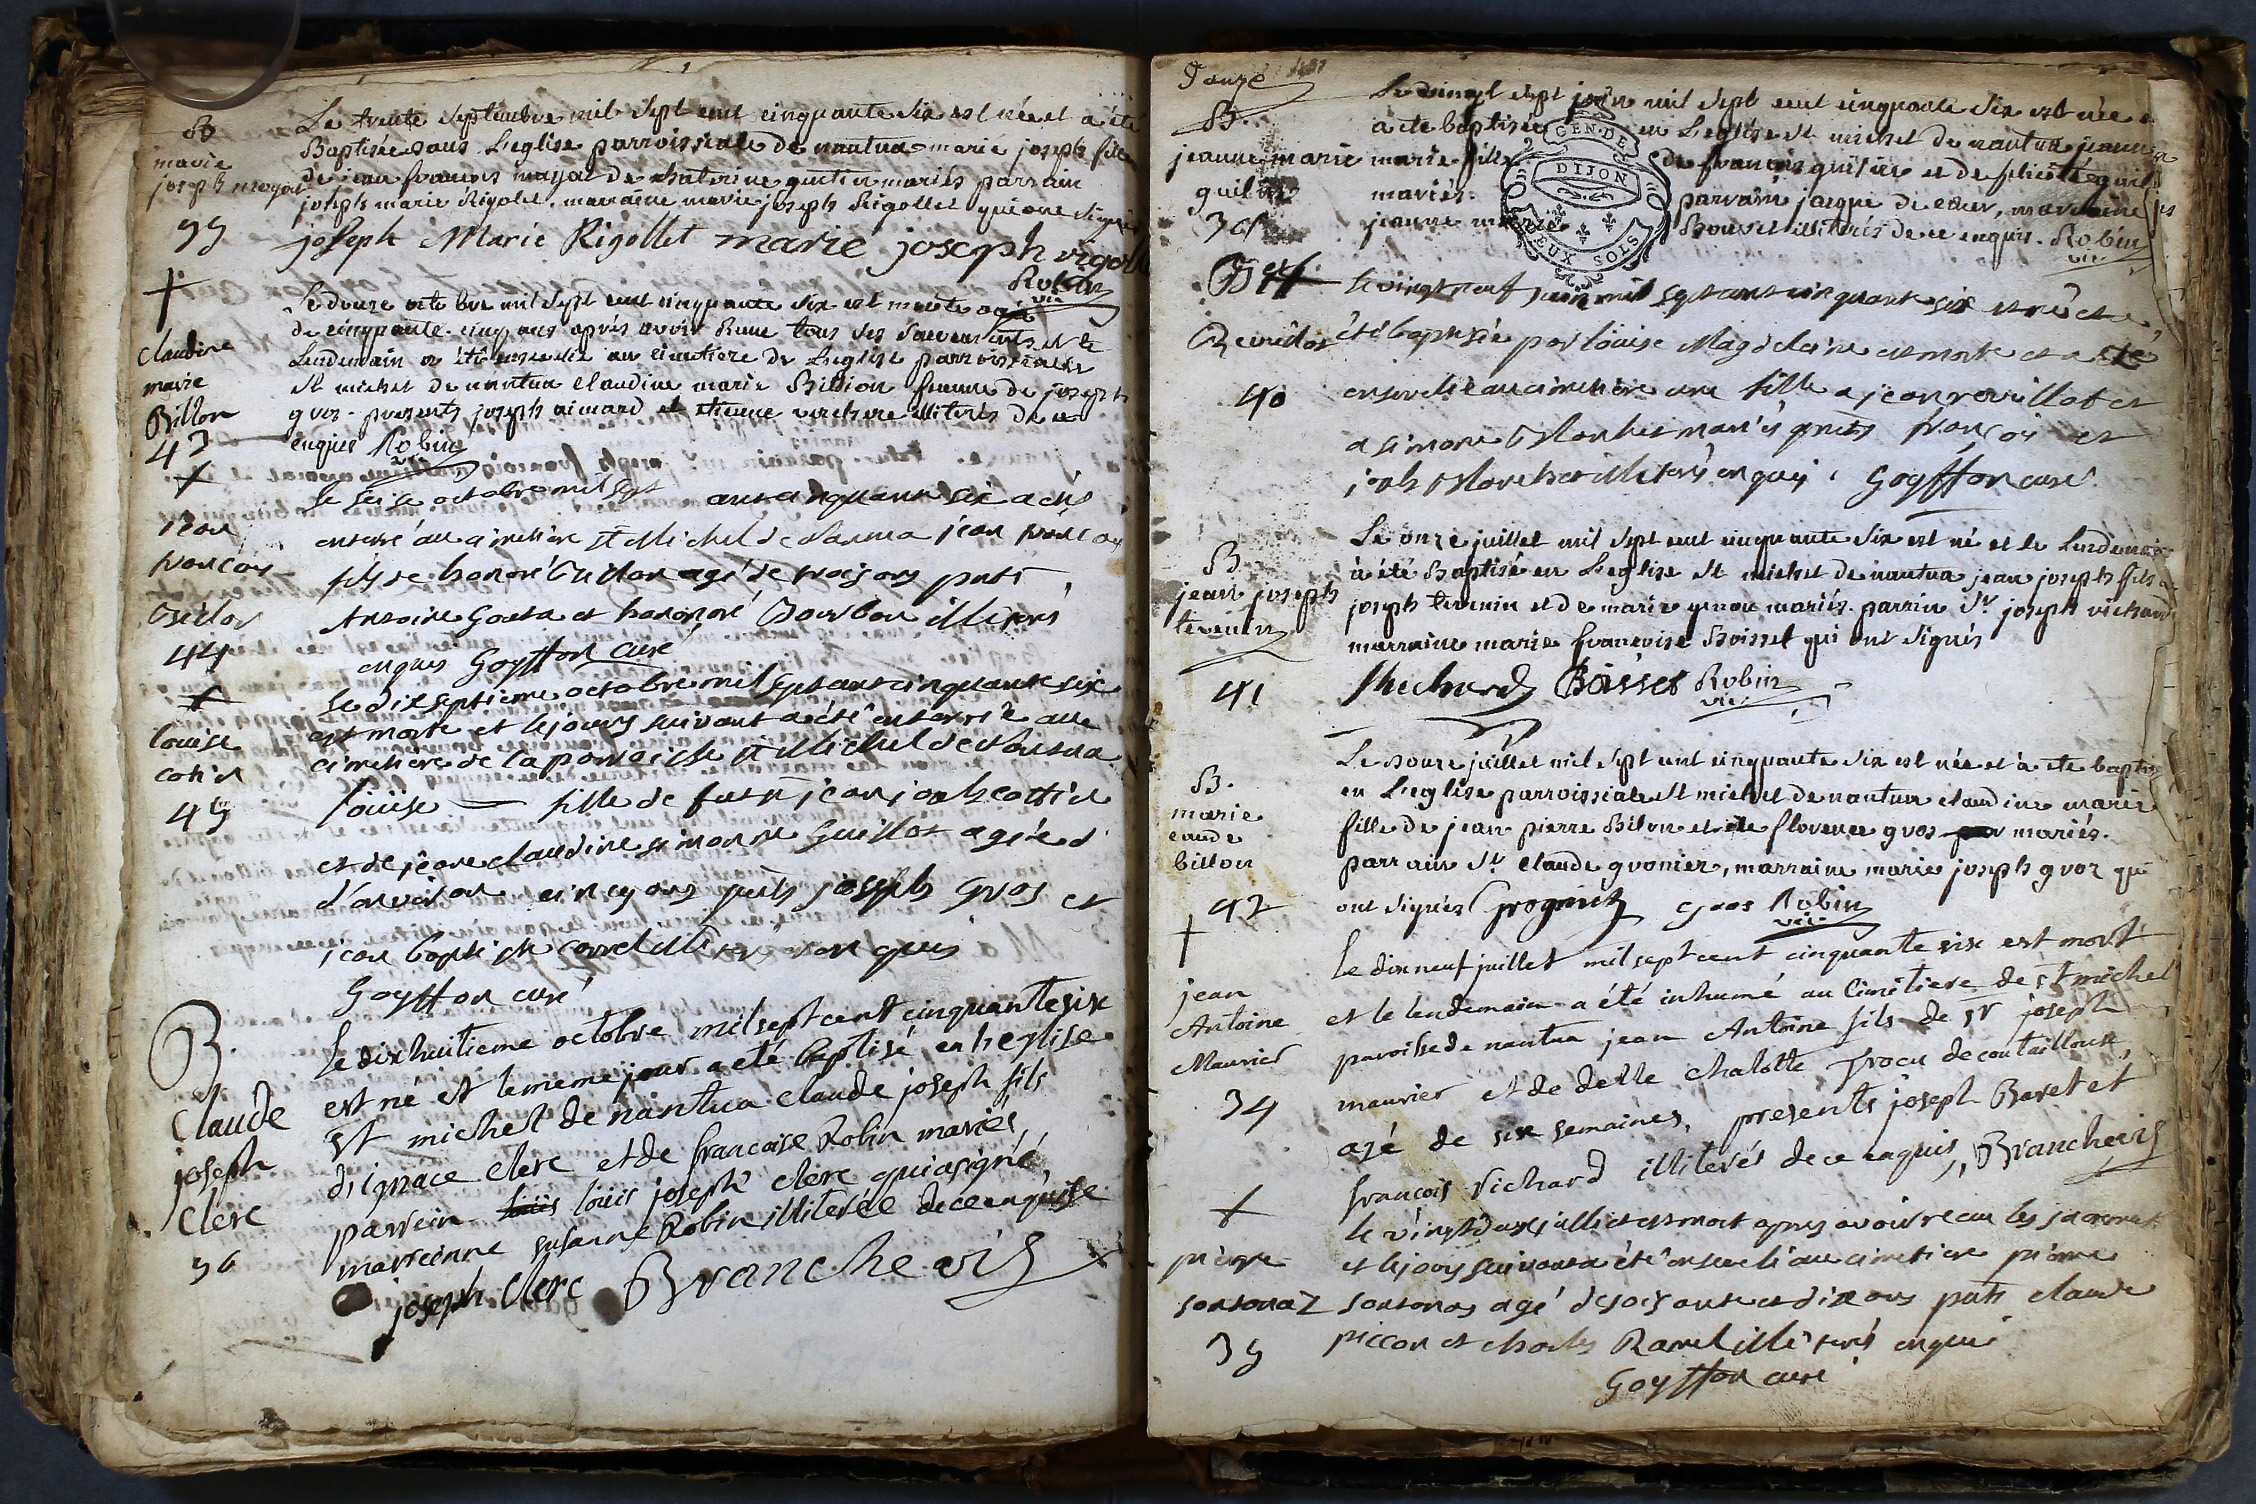 B
marie
joseph mayat
55
Le trente septembre mil sept cent cinquante six est née et a été
Baptisée dans L'eglise parroissiale de nantua marie joseph fille
de jean françois mayat de chaterine guttin mariés parrain
joseph marie Rigolet, marraine marie joseph Rigollet qui ont signés
joseph Marie Rigollet marie joseph rigolle
Robin
vic
Claudine
marie
Billon
43
Le douze octobre mil sept cent cinquante six est morte agée
de cinquante cinq ans après avoir Reçue tous ses sacrements et le
Lendemain a été ensevelie au cimetiere de L'eglise parroissiale
st michel de nantua claudine marie Billion femme de joseph
gros. presents joseph aimard et etienne verchere illiterés de ce
enquis Robin
vic
jean
françois
44
le seize octobre mil sept cent cinquante six a étés
enterré au cimetière st Michel de Nantua jean françois
fils de honoré agé de trois ans pnts
Antoine Gouta et honoré Bourbon illiterés
enquis Goyffon curé
louise
cotin
45
le dixseptieme octobre mil sept cent cinquante six
est morte et le jours suivant a été enterrée au
cimetiere de la parroisse st Michel de Nantua
louise fille de fut jean joseph cottin
et de jeane claudine simonne Guillot agée d
d'anviron cinq ans pnts joseph Gros et
jean baptiste Carrel illiterés enquis
Goyffon curé
B.
Claude
joseph
Clerc
56
Le dixhuitieme octobre mil sept cent cinquante six
est né et le meme jour a eté baptisé en l'eglise
st michel de nantua claude joseph fils
d'ignace clerc et de francoise Robin mariés,
parrein louis louis joseph clerc qui a signé,
marreinne susanne Robin illiterée de ce enquise
joseph Clerc Branchevis
Douze
B.
jeanne marie
guilin
39
Le vingt sept juin mil sept cent cinquante six est née e
a ete baptisée en L'eglise st michel de nantua jeanne
marie fille de francois guilin et de felicité guil
mariés. parrain jacque , marraine
jeanne marie Bouvet illiterés de ce enquis. Robin
vic
GEN. DE
DIJON
DEUX SOLS
B et
Revillot
40
le vingt neuf juin mil sept cent cinquante six est née et a
été baptisée par louise Magdelaine est morte et a été
ensevelie au cimetière une fille a jean revillot et
a simone Monhet mariés pnts françois et
joseph Monhet illiterés enquis. Goyffon curé
B.
jean joseph
tevenin
41
Le onze juillet mil sept cent cinquante six est né et le Lendemain
à été Baptisé en L'eglise st michel de nantua jean joseph fils de
joseph tevenin et de marie genou mariés. parrin Sr joseph richard
marraine marie francoise Boisset qui ont signés
Richard Boisset Robin
vic
B.
marie
caude
billon
42
Le douze juillet mil sept cent cinquante six est née et à ete baptis
en L'eglise parroissiale st michel de nantua claudine marie
fille de jean pierre Bilon et de florence gros mariés.
parrain Sr claude gronier, marraine marie joseph gros qui
ont signés Grognier gros Robin
vic
jean
Antoine
Maurier
34
Le dixneuf juillet mil sept cent cinquante six est mort
et le lendemain a été inhumé au Cimetiere de st michel
paroisse de nantua jean Antoine fils de sr joseph
maurier et de delle chalotte Trocu de contaillouse,
agé de six semaines, presents joseph Baret et
françois Richard illiterés de ce enquis, Branchevis
pierre
sonsonaz
35
le vingt deux juillet est mort apres avoir recu les sacrements
et le jours suivant a été enseveli au cimetiere pierre
sonsonas agé de soixante et dixe ans pnts claude
piccon et charles Ravel illiterés enquis
Goyffon curé